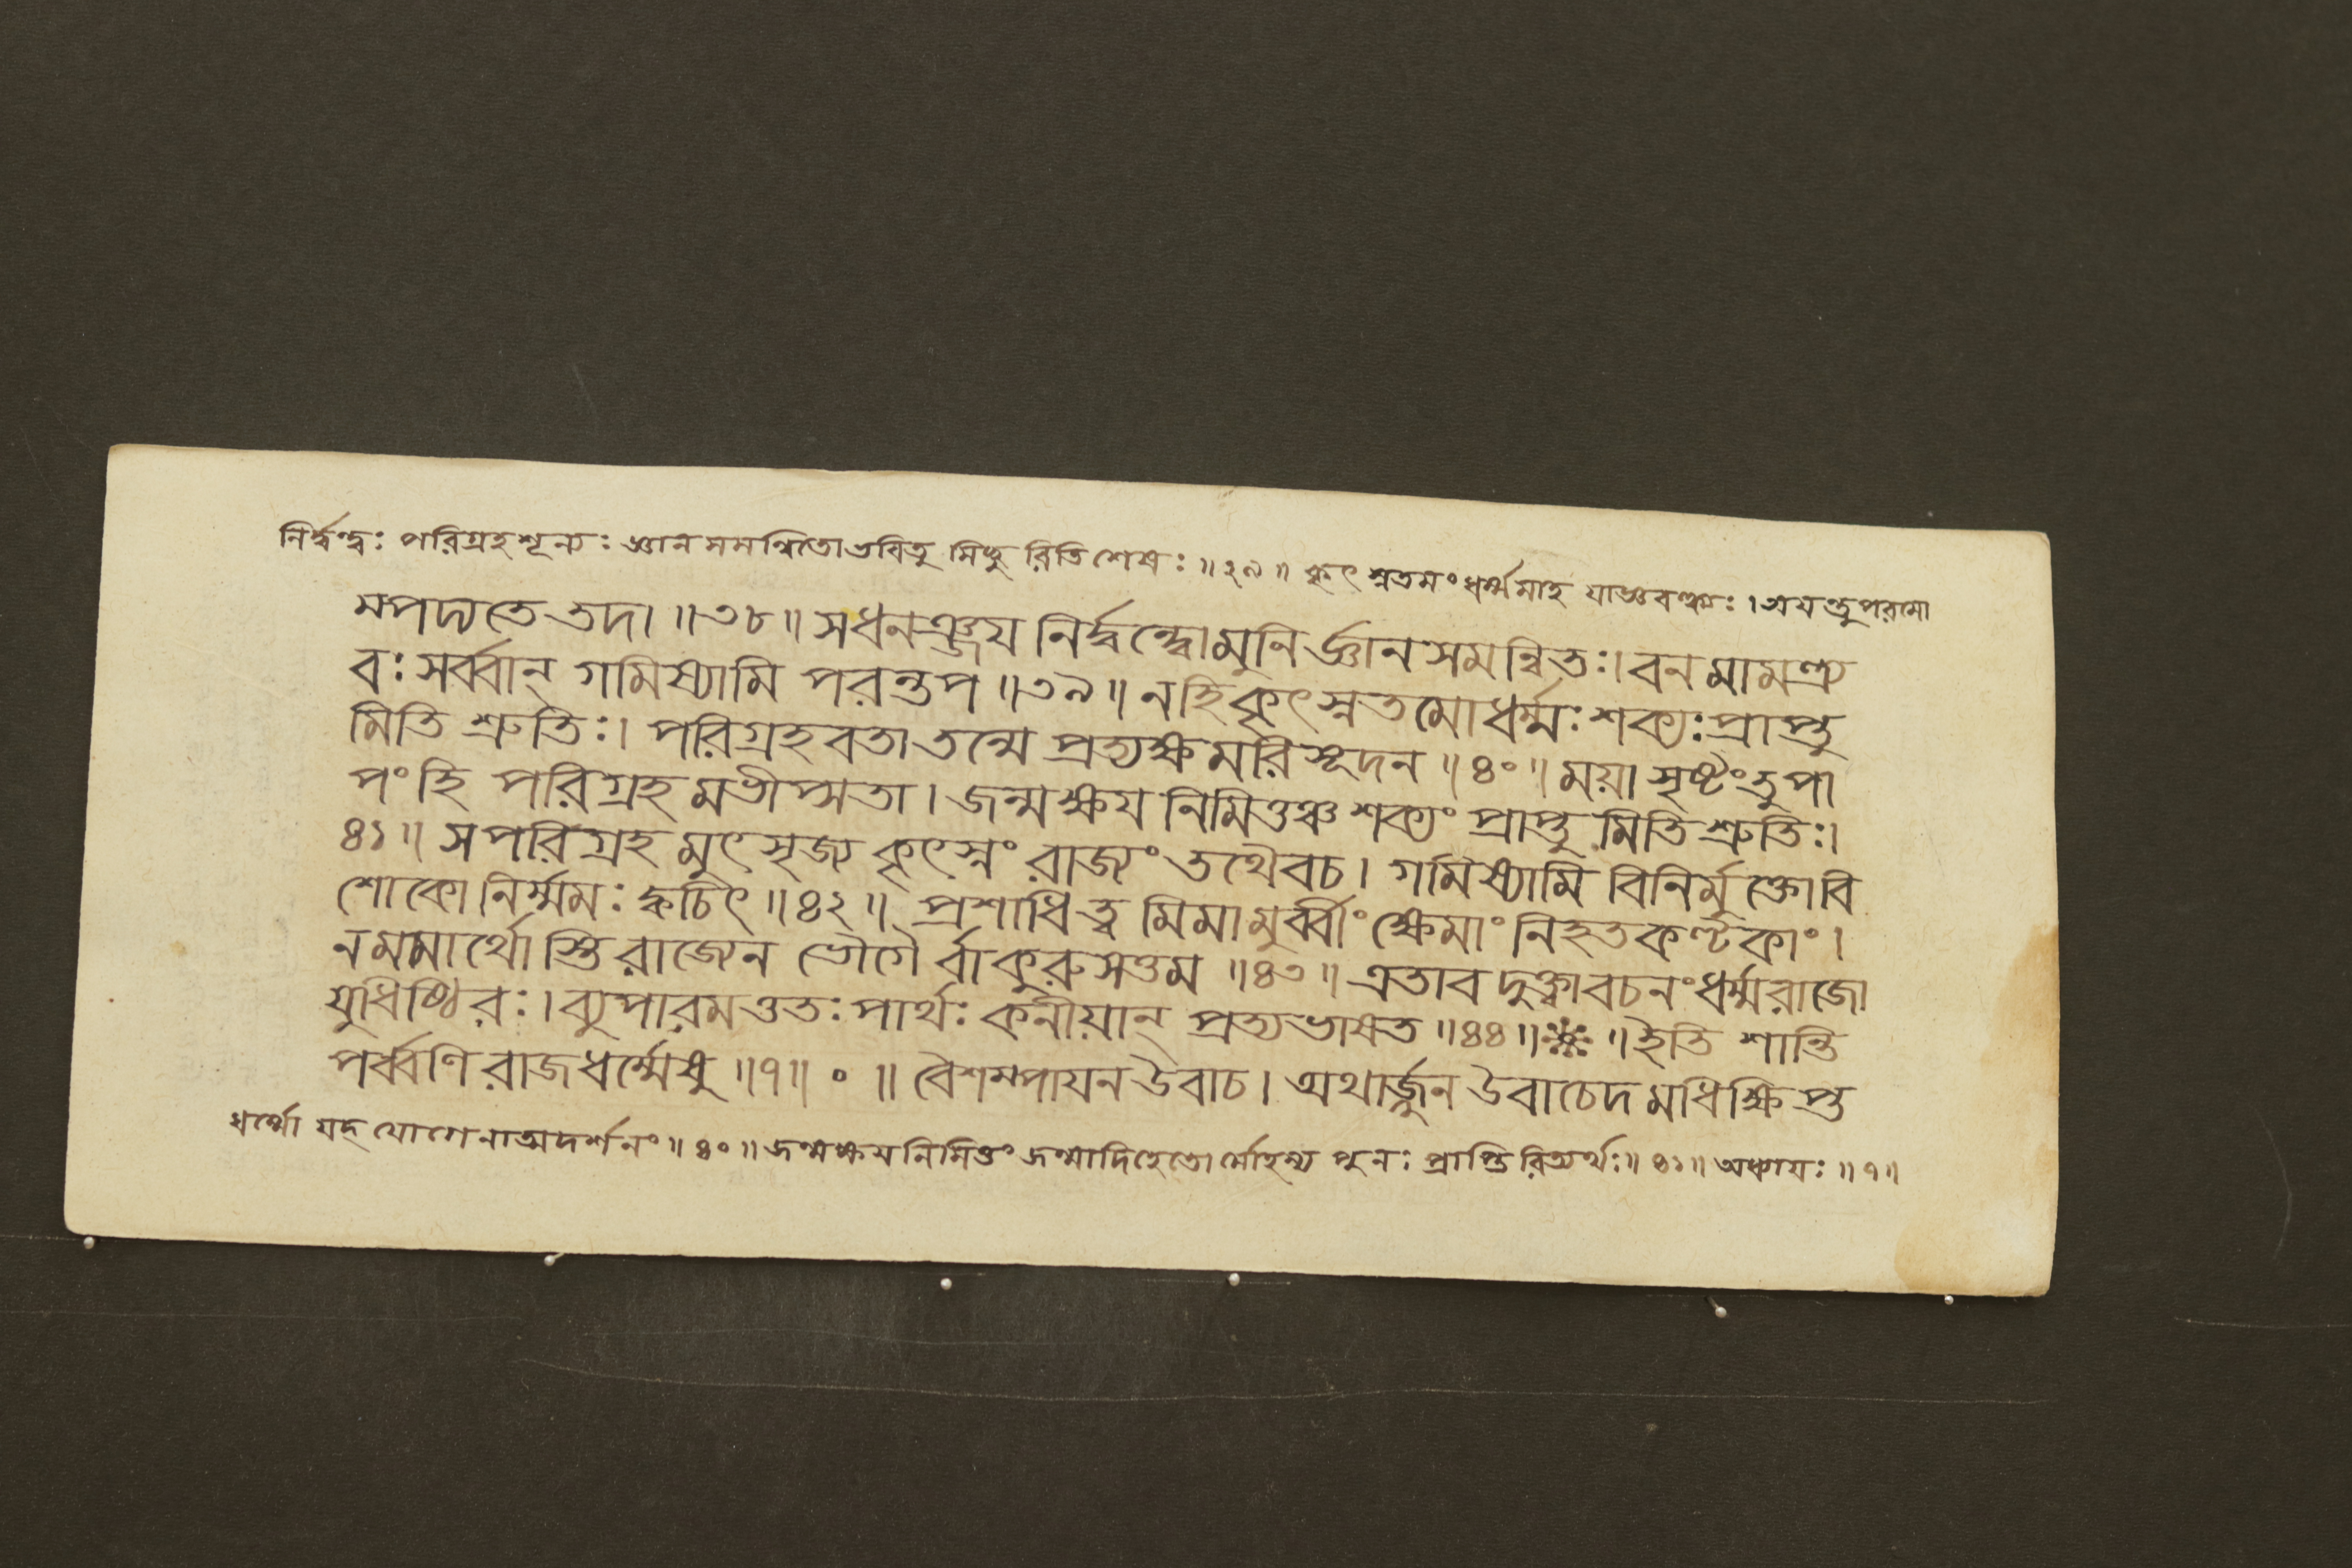 নির্দ্বন্দ্বঃ পরিগ্রহশূন্যঃ জ্ঞানসমন্বিতোভবিতু মিচ্ছু রিতিশেষঃ ॥৩৯॥ কৃৎস্নতমংধর্ম্মমাহ যাজ্ঞবল্ক্যঃ । অযন্তুপরমো
ম্পদ্যতে তদা ॥৩৮॥ সধনঞ্জয নির্দ্বন্দ্বোমুনির্জ্ঞানসমন্বিতঃ। বনমামন্ত্র্য
বঃ সর্ব্বান্ গমিষ্যামি পরন্তপ ॥৩৯॥ নহিকৃৎস্নতমোধর্ম্মঃ শক্যঃপ্রাপ্তু
মিতি শ্রুতিঃ। পরিগ্রহবতাতন্মে প্রত্যক্ষমরিসূদন ॥৪০॥ ময়া সৃষ্টংতুপা
পংহি পরিগ্রহমভীপ্সতা । জন্মক্ষয নিমিত্তঞ্চ শক্যং প্রাপ্তু মিতি শ্রুতিঃ।
৪১॥ সপরিগ্রহমুৎসৃজ্য কৃৎস্নং রাজ্যং তথৈবচ । গমিষ্যামি বিনির্মুক্তোবি
শোকো নির্ম্মমঃ ক্বচিৎ ॥৪২॥ প্রশাধিত্ব মিমামুর্ব্বীংক্ষেমাংনিহতকণ্টকাং ।
নমমার্থোস্তি রাজ্যেন ভোগৈর্বাকুরুসত্তম ॥৪৩॥ এতাবদুক্ত্বাবচনংধর্ম্মরাজো
যুধিষ্ঠিরঃ । ব্যুপারমত্ততঃ পার্থঃ কনীয়ান্ প্রত্যভাষত ॥৪৪॥ ॥ইতি শান্তি
পর্ব্বণি রাজধর্ম্মেষু ॥৭॥ ০ ॥ বৈশম্পাযন উবাচ । অথার্জ্জুন উবাচেদমধিক্ষিপ্ত
ধর্ম্মো যদ্ যোগেনাত্মদর্শনং ॥৪০॥ জন্মক্ষযনিমিত্তং জন্মাদিহেতোর্মোহস্য পুনঃ প্রাপ্তিরিত্যর্থঃ ॥৪১॥ অধ্যাযঃ ॥৭॥